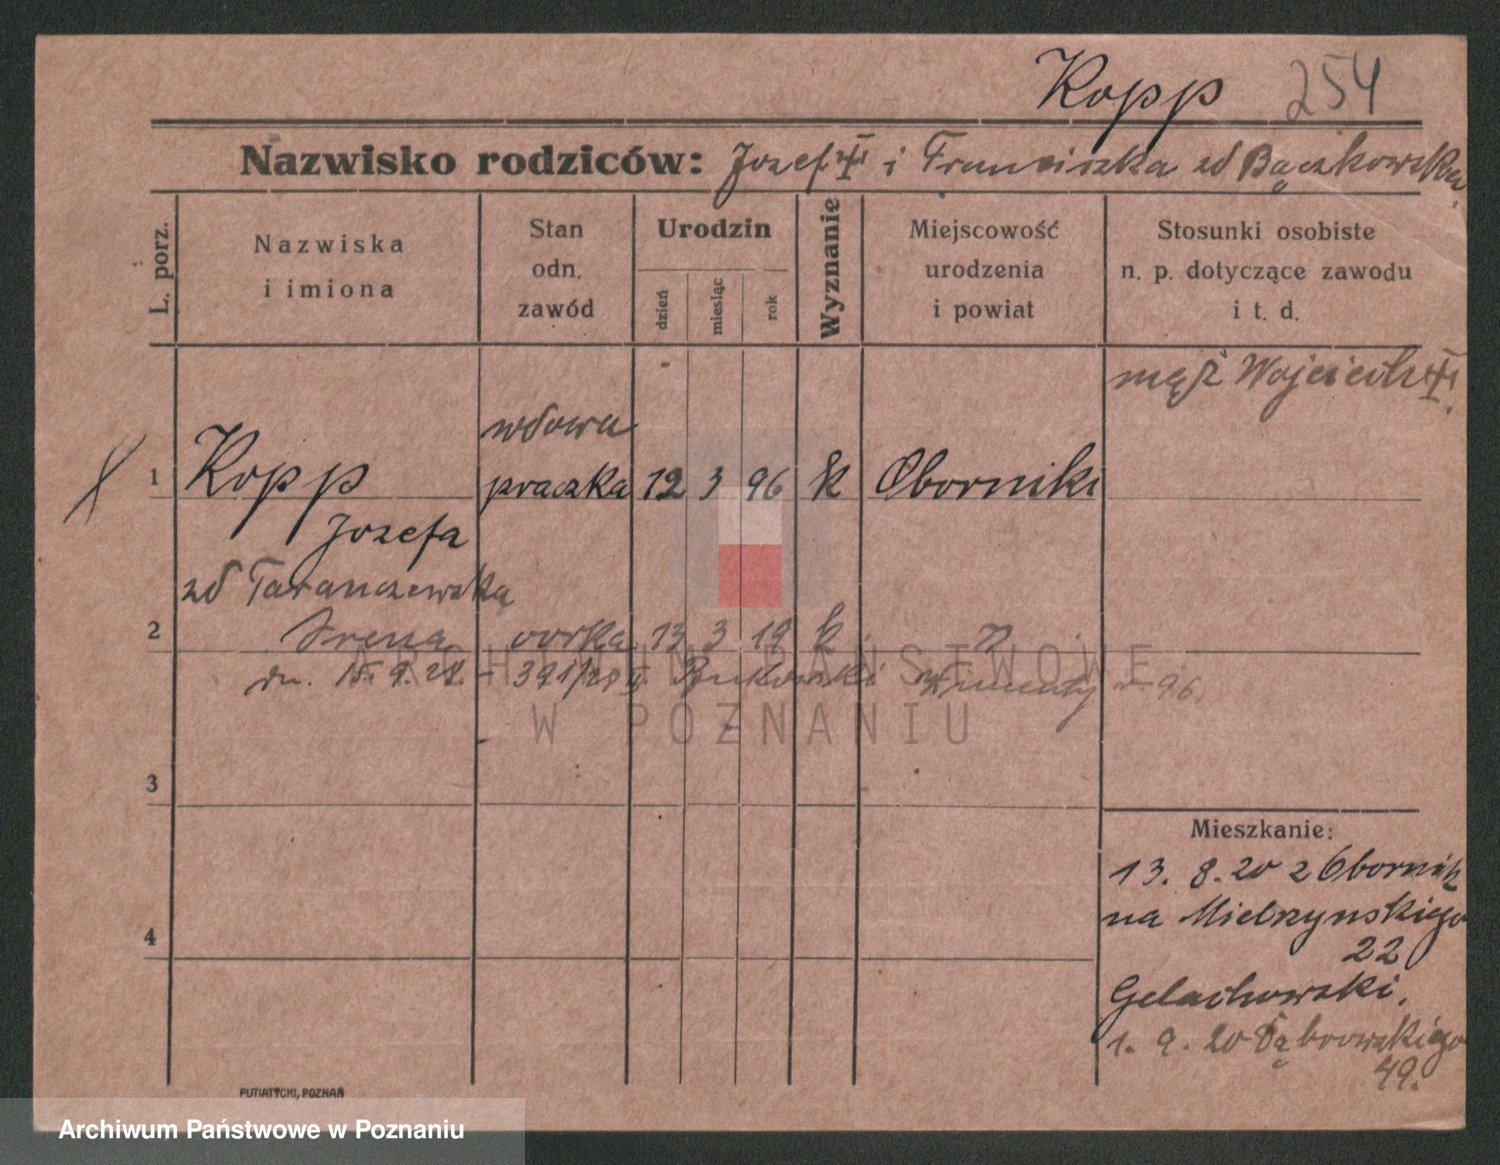 Kopp 254
Nazwisko rodziców: Jozef i Franciszka zd Bączkowska
L. porz.
Nazwiska
i imiona
Stan
odn.
zawód
Urodzin
dzień
miesiąc
rok
Wyznanie
Miejscowość
urodzenia
i powiat
Stosunki osobiste
n. p. dotyczące zawodu
i t. d.
mąż Wojciech
wdowa
1 Kopp praczka 12 3 96 k Oborniki
Jozefa
zd Taranczewska
2 Irena corka 13 3 19 k
dn. 15.9.28. - 391/28
ARCHIWUM PAŃSTWOWE
W POZNANIU
3
4
Mieszkanie:
13. 8. 20 z Obornik
na Mielzynskiego
22
Gelachowski.
1. 9. 20 Dąbrowskiego
49.
PUTIATYCKI, POZNAŃ
Archiwum Państwowe w Poznaniu